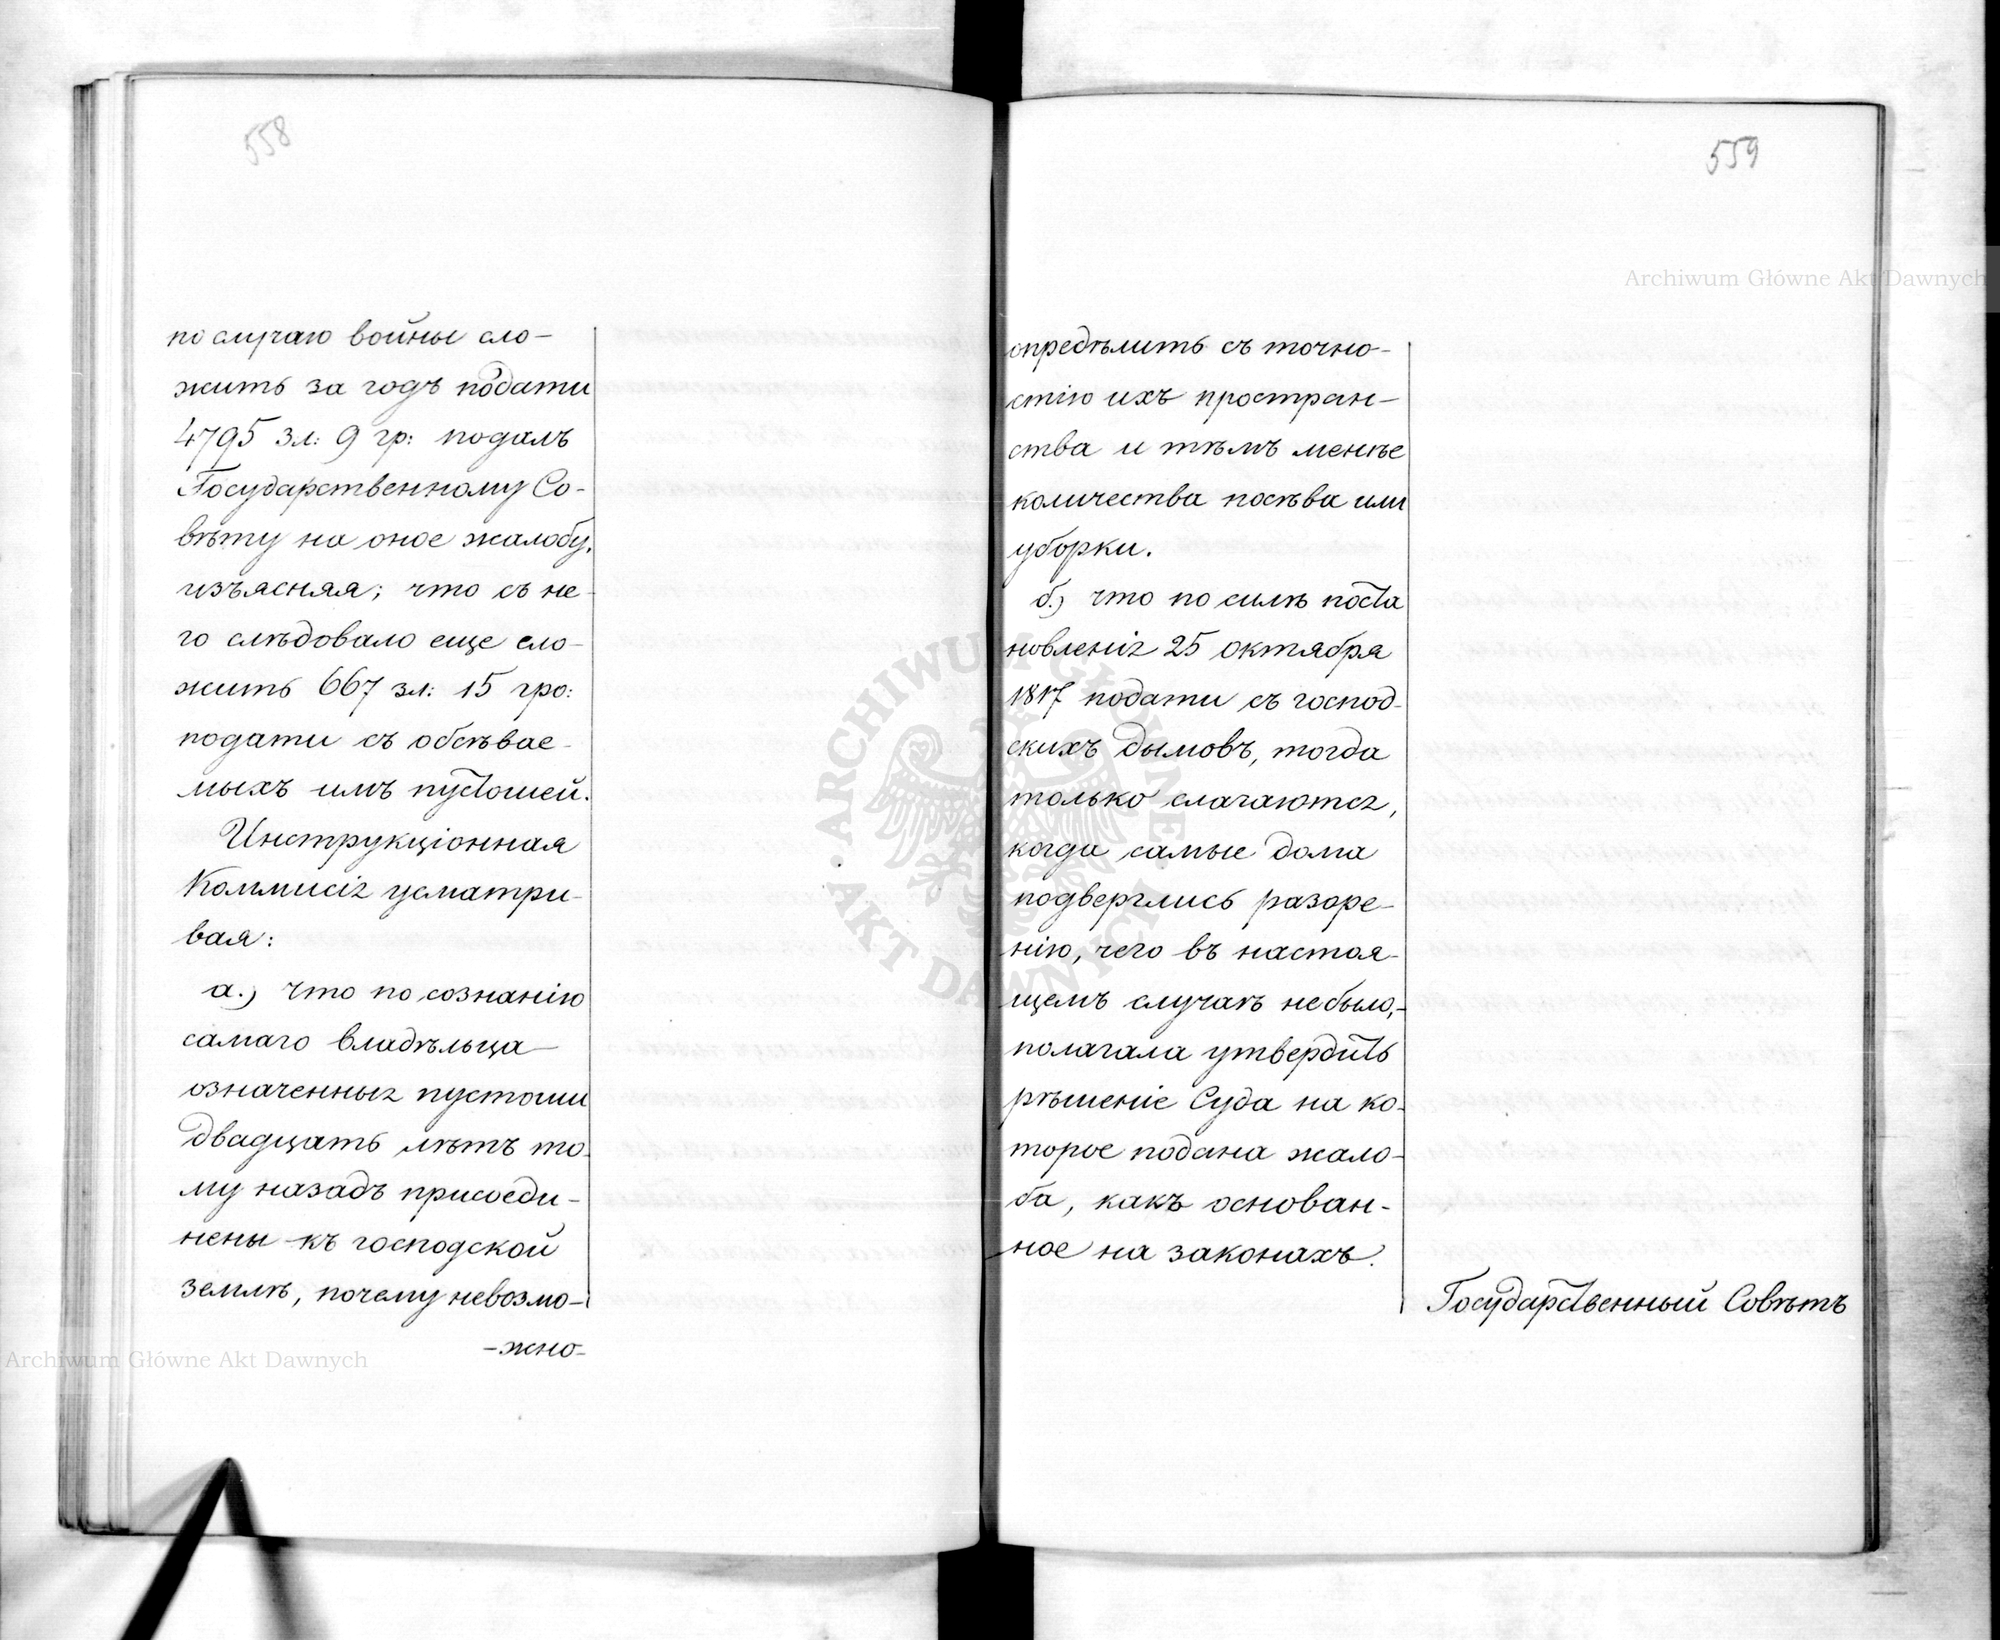 558
по случаю войны сло-
жить за годъ подати
4795 зл: 9 гр: подалъ
Государственному Со-
вѣту на оное жалобу,
изъясняя; что съ не-
го слѣдовало еще сло-
жить 667 зл: 15 гро:
подати съ обсѣвае-
мыхъ имъ пустошей.
Инструкціонная
Коммисія усматри-
вая:
а.) что по сознанію
самаго владѣльца
означенныя пустоши
двадцать лѣтъ то-
му назадъ присоеди-
нены къ господской
землѣ, почему невозмо-
-жно-
559
опредѣлить съ точно-
стію ихъ простран-
ства и тѣмъ менѣе
количества посѣва или
уборки.
б.) что по силѣ поста
новленія 25 октября
1817 подати съ господ-
скихъ дымовъ, тогда
только слагаются,
когда самые дома
подверглись разоре-
нію, чего въ настоя-
щемъ случаѣ небыло,-
полагала утвердить
рѣшеніе Суда на ко-
торое подана жало-
ба, какъ основан-
ное на законахъ.
Государственный Совѣтъ
Archiwum Główne Akt Dawnych
Archiwum Główne Akt Dawnych
ARCHIWUM GŁÓWNE AKT DAWNYCH